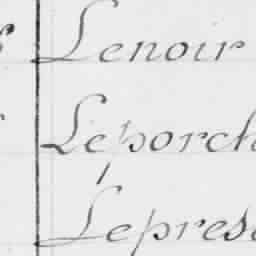 Lenoir
Leporch
Lepres